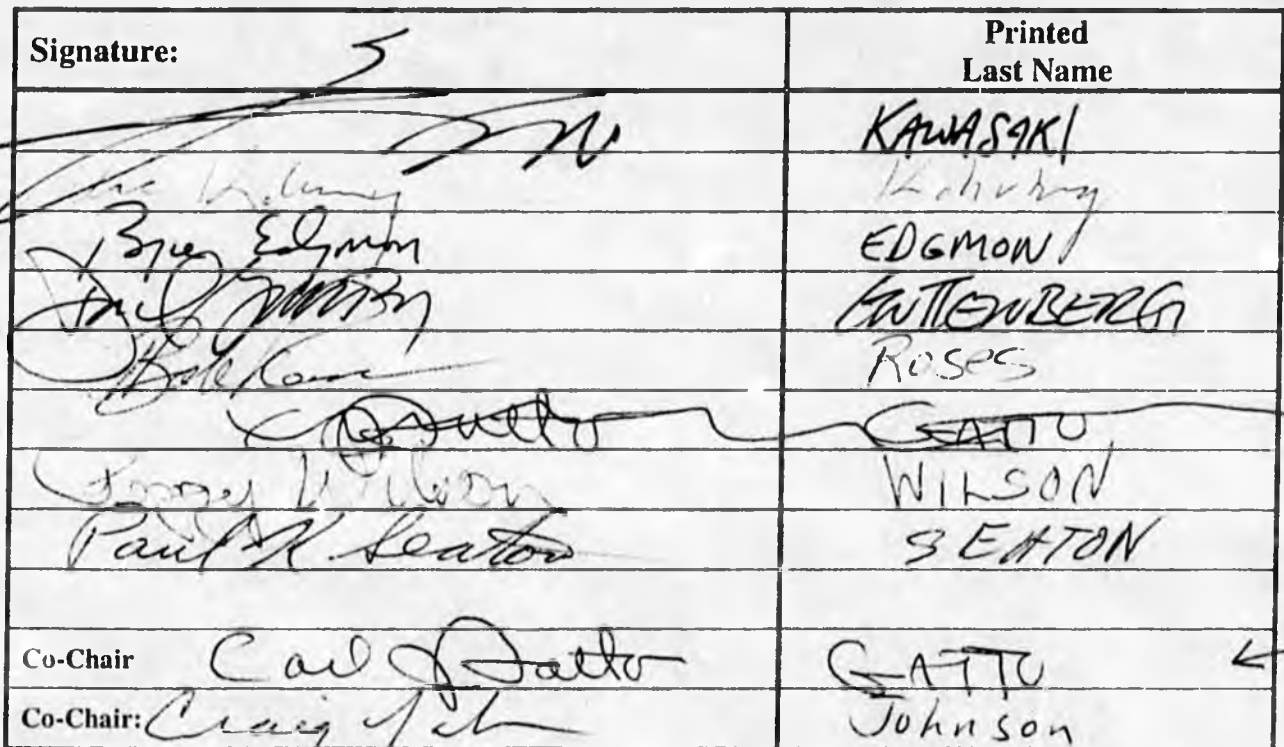 Signature: Printed
Last Name
KAWASAKI
Bryce Edgmon EDGMON
GUTTENBERG
Bob Roses
Gatto GATTO
Peggy Wilson WILSON
Paul K. Seaton SEATON
Co-Chair Carl J Gatto GATTO
Co-Chair: Craig Johnson